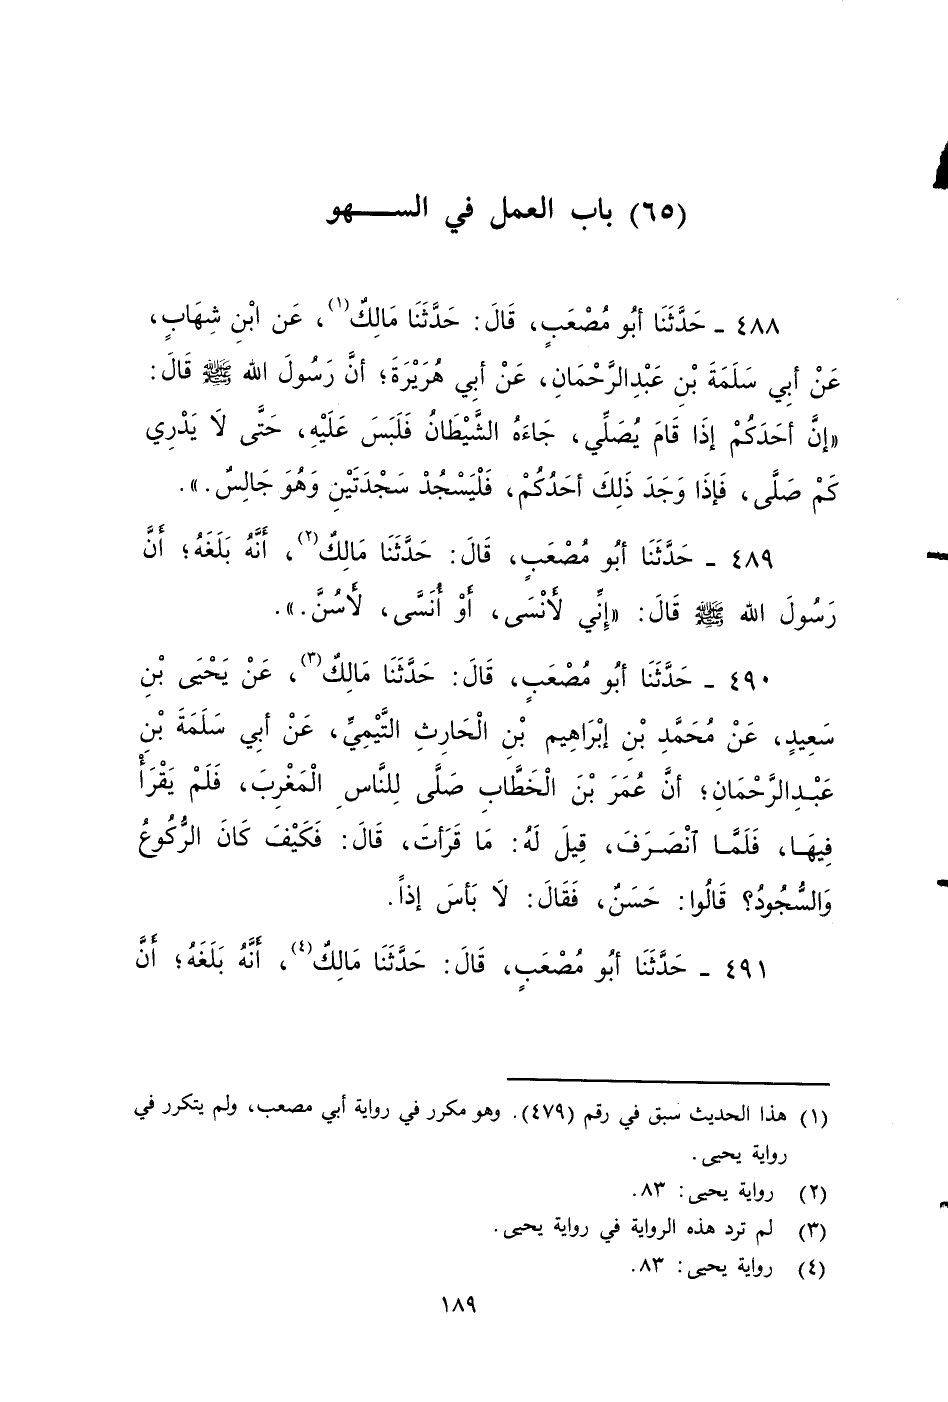 (٦٥) باب العمل في الســـهو
٤٨٨ ـ حَدَّثَنَا أبُو مُصْعَبٍ، قَالَ: حَدَّثَنَا مَالِكٌ(١)، عَن ابْنِ شِهَابٍ،
عَنْ أبِي سَلَمَةَ بْنِ عَبْدِالرَّحْمَانِ، عَنْ أبِي هُرَيْرَةَ؛ أنَّ رَسُولَ الله ﷺ قَالَ:
«إنَّ أحَدَكُمْ إذَا قَامَ يُصَلِّي، جَاءَهُ الشَّيْطَانُ فَلَبَسَ عَلَيْهِ، حَتَّى لَا يَدْرِي
كَمْ صَلَّى، فَإذَا وَجَدَ ذَلِكَ أحَدُكُمْ، فَلْيَسْجُدْ سَجْدَتَيْنِ وَهُوَ جَالِسٌ.».
٤٨٩ ـ حَدَّثَنَا أبُو مُصْعَبٍ، قَالَ: حَدَّثَنَا مَالِكٌ(٢)، أَنَّهُ بَلَغَهُ؛ أَنَّ
رَسُولَ الله ﷺ قَالَ: «إِنِّي لَأَنْسَى، أَوْ أُنَسَّى، لَأَسُنَّ.».
٤٩٠ ـ حَدَّثَنَا أبُو مُصْعَبٍ، قَالَ: حَدَّثَنَا مَالِكٌ(٣)، عَنْ يَحْيَى بْنِ
سَعِيدٍ، عَنْ مُحَمَّدِ بْنِ إبْرَاهِيم بْنِ الْحَارِثِ التَّيْمِيِّ، عَنْ أبِي سَلَمَةَ بْنِ
عَبْـدِالرَّحْمَانِ؛ أنَّ عُمَرَ بْنَ الْخَطَّابِ صَلَّى لِلنَّاسِ الْمَغْرِبَ، فَلَمْ يَقْرَأْ
فِيهَـا، فَلَمَّـا ٱنْصَـرَفَ، قِيلَ لَهُ: مَا قَرَأتَ، قَالَ: فَكَيْفَ كَانَ الرُّكُوعُ
وَالسُّجُودُ؟ قَالُوا: حَسَنٌ، فَقَالَ: لَا بَأسَ إذاً.
٤٩١ ـ حَدَّثَنَا أبُو مُصْعَبٍ، قَالَ: حَدَّثَنَا مَالِكٌ(٤)، أَنَّهُ بَلَغَهُ؛ أَنَّ
(١) هذا الحديث سبق في رقم (٤٧٩). وهو مكرر في رواية أبي مصعب، ولم يتكرر في
رواية يحيى.
(٢) رواية يحيى: ٨٣.
(٣) لم ترد هذه الرواية في رواية يحيى.
(٤) رواية يحيى: ٨٣.
١٨٩